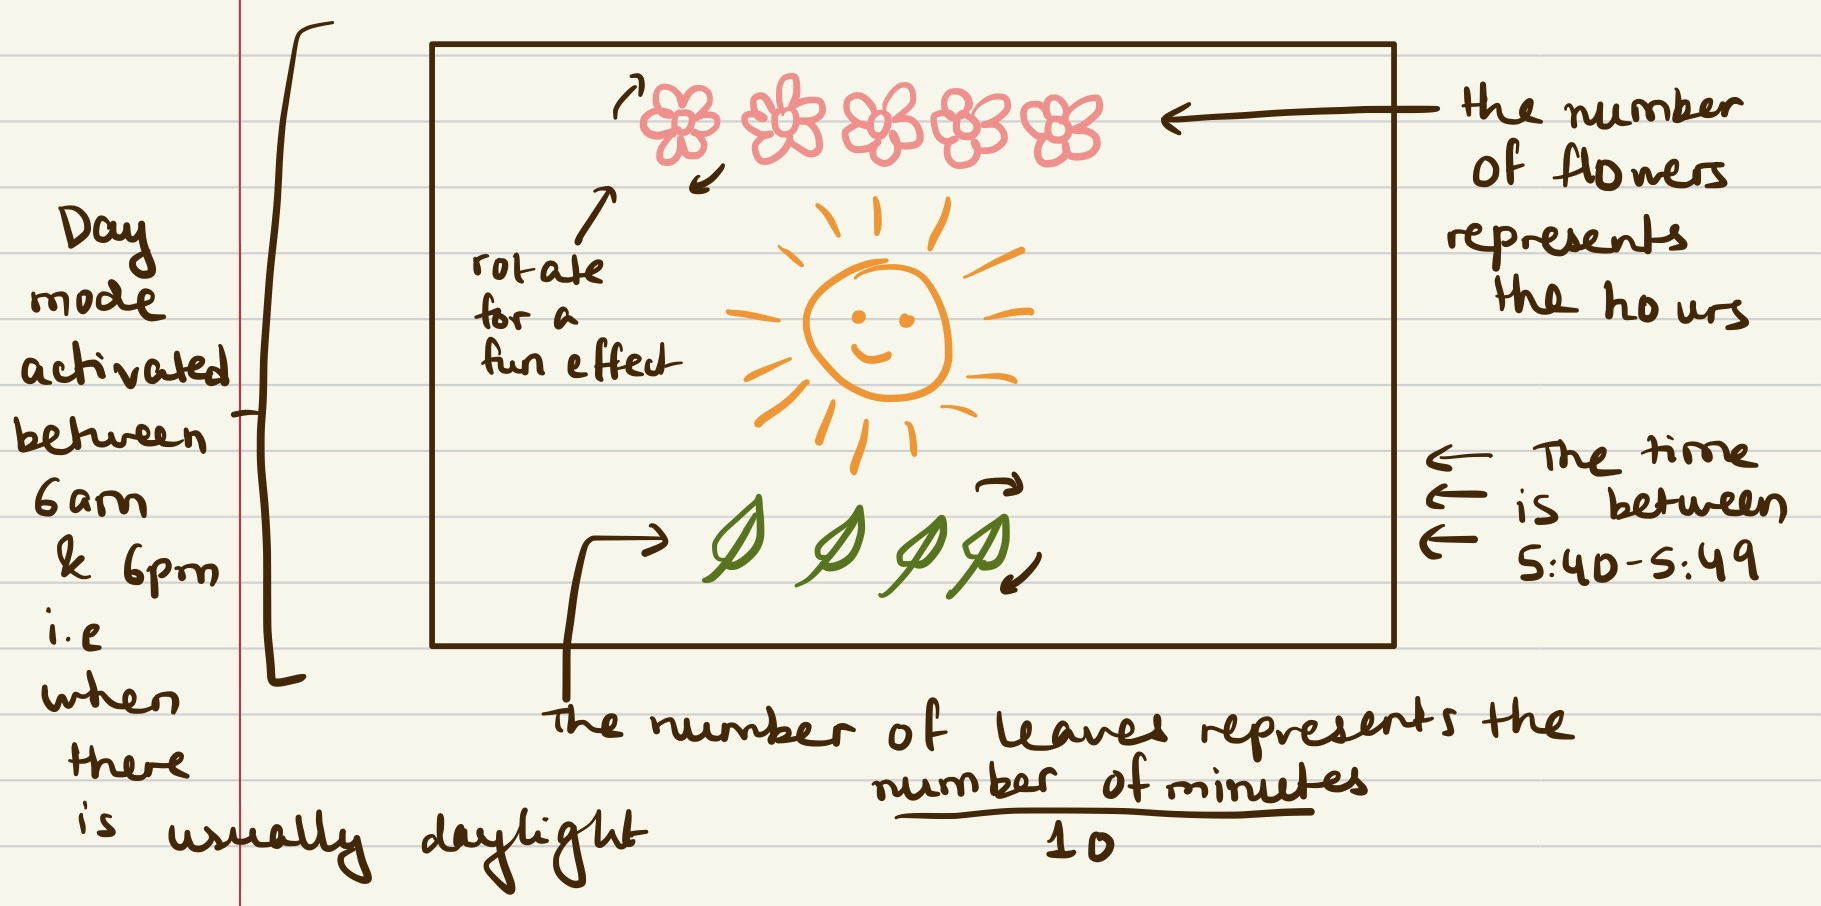 Day
mode
activated
between
6am
& 6pm
i.e
when
there
is usually daylight
rotate
for a
fun effect
the number
of flowers
represents
the hours
The time
is between
5:40-5:49
The number of leaves represents the
number of minutes
10